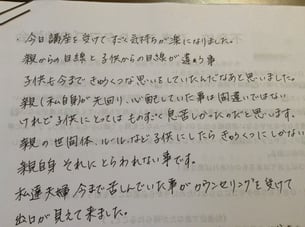 ・今日講座を受けてすごく気持ちが楽になりました。
親からの目線と子供からの目線が違う事
子供も今まできゅうくつな思いをしていたんだなあと思いました。
親(私自身)が先回り、心配していた事は間違いではない
けれど子供にとってはものすごく息苦しかったのだと思います。
親の世間体、ルールなど子供にしたらきゅうくつにしかない
親自身それにとらわれない事です。
私達夫婦今まで苦しんでいた事がカウンセリングを受けて
出口が見えて来ました。